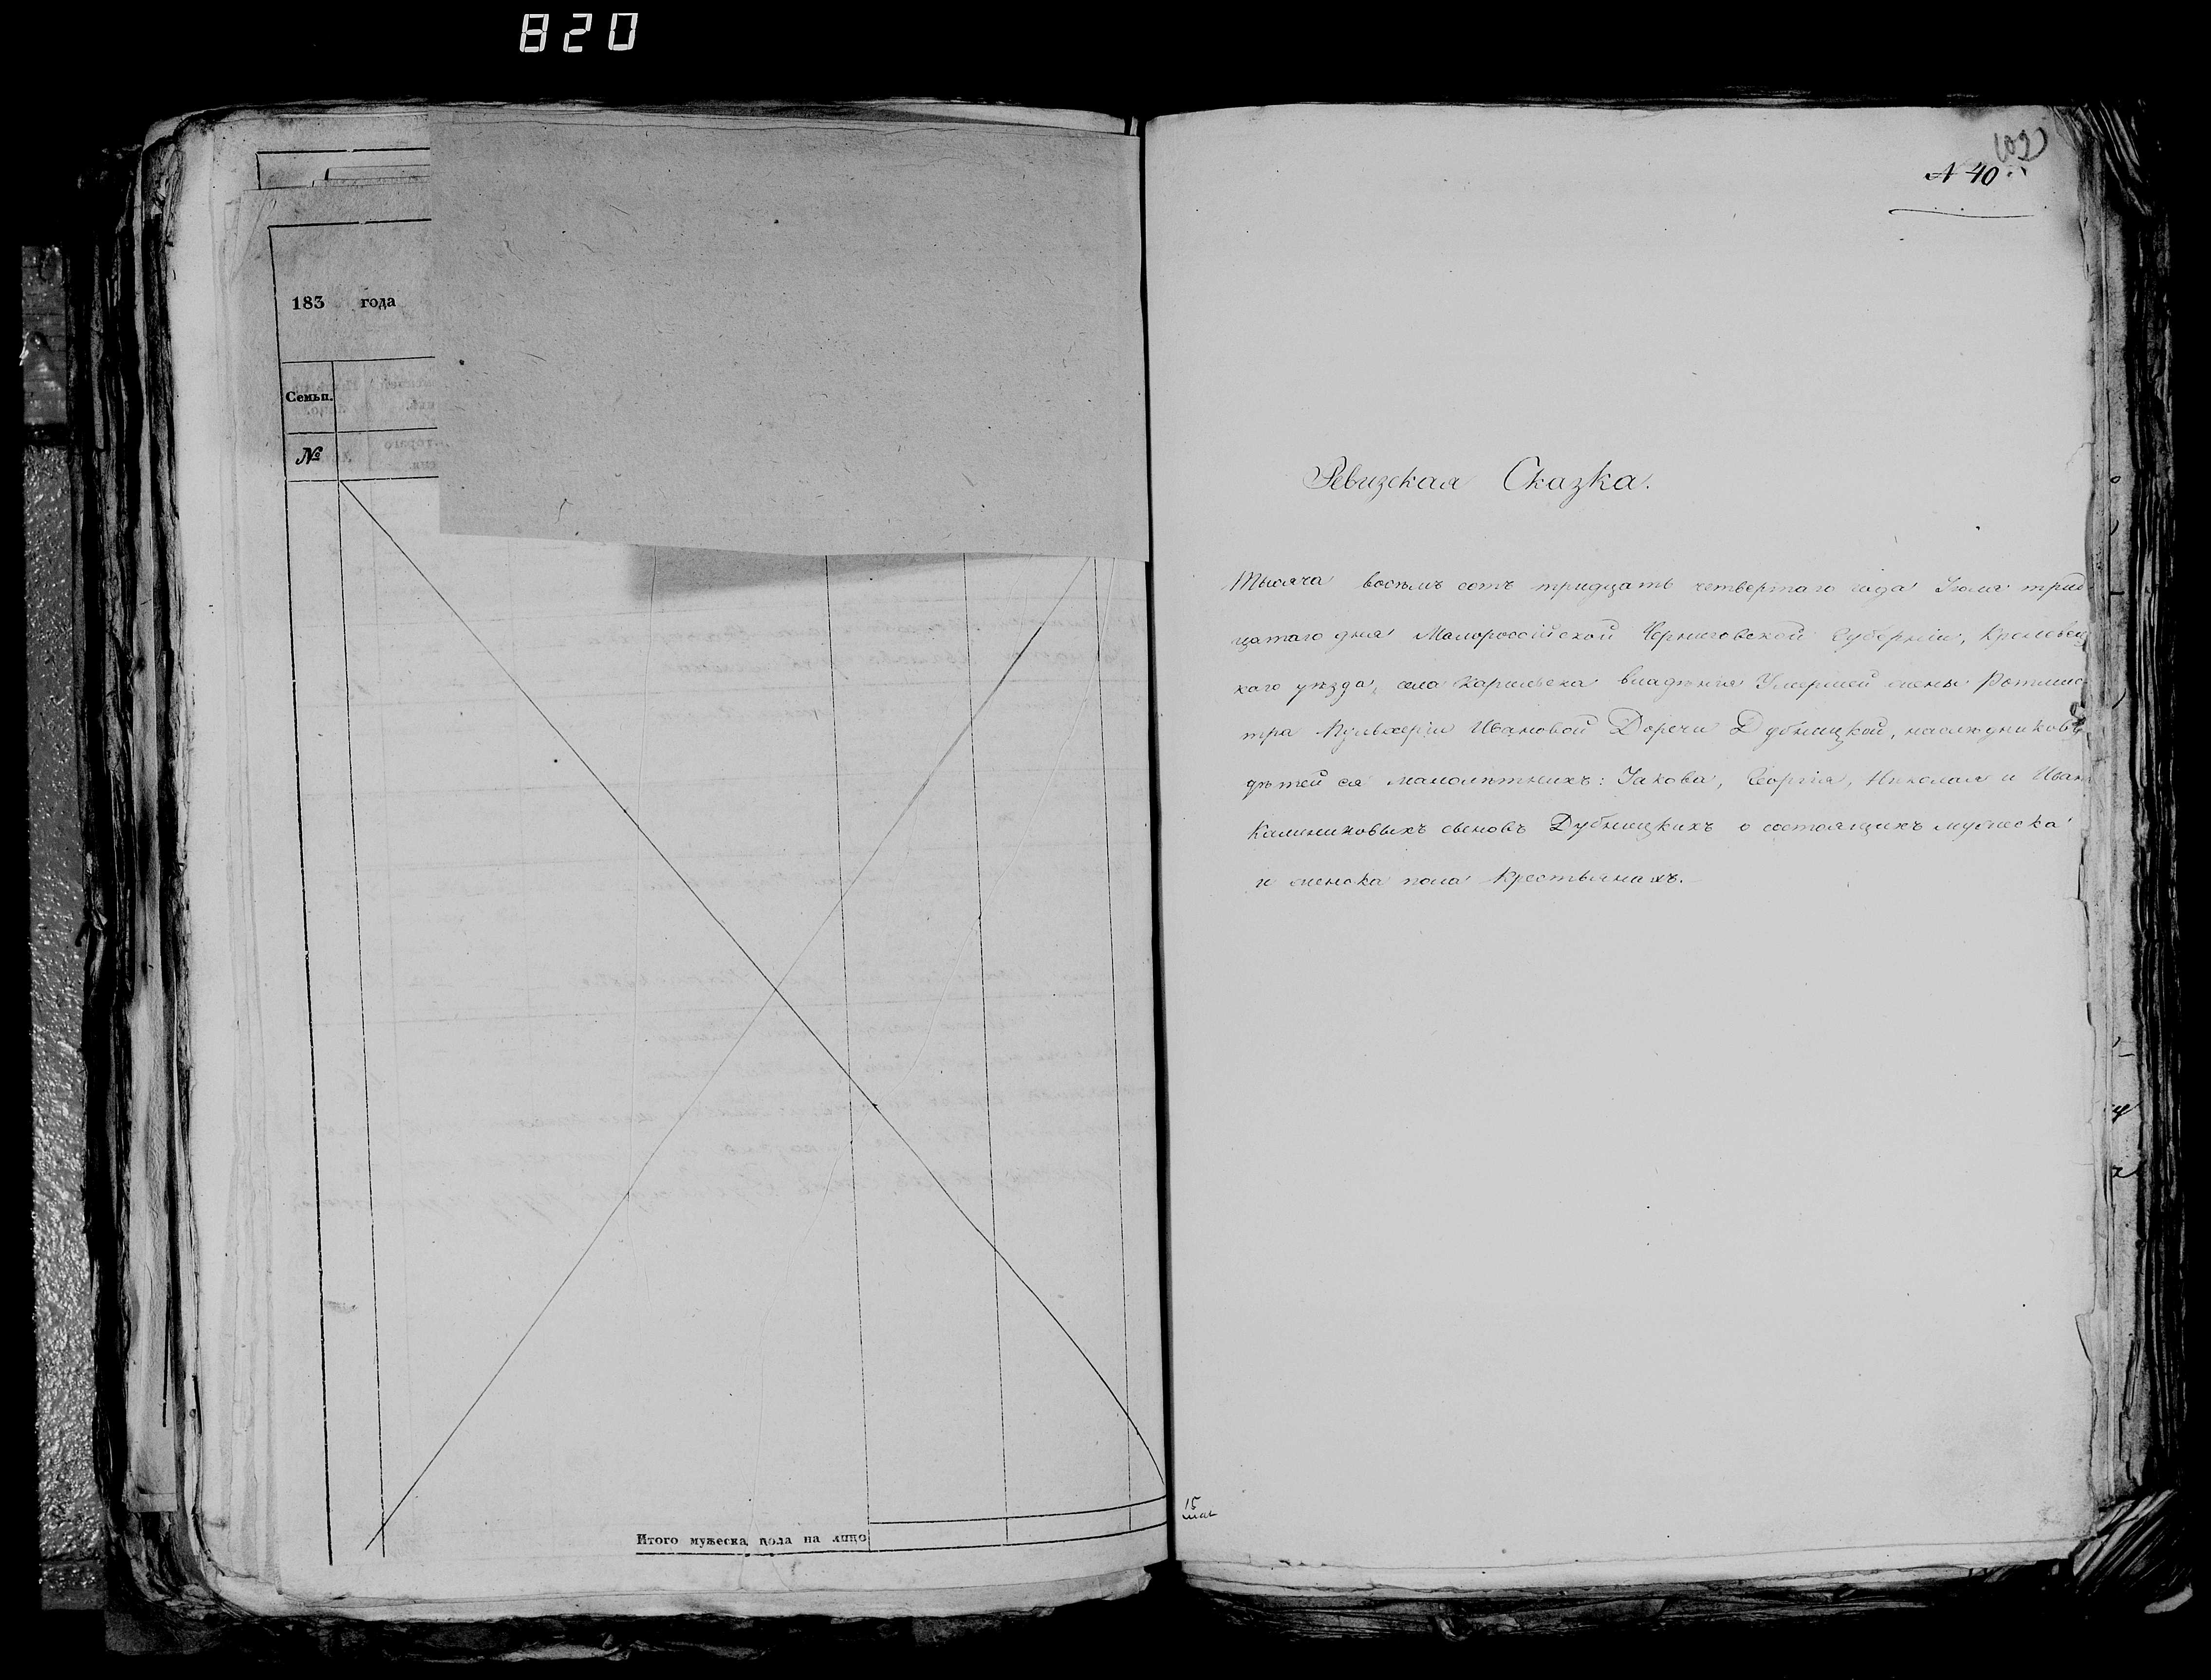 820
183 года
Семьи.
№
Итого мужеска пола на лицо
109
N 40
Ревизская Сказка.
Тысяча восемь сотъ тридцать четвертаго года Іюля трид
цатаго дня Малороссійской Черниговской Губерніи, Кролевец
каго уѣзда, села Карильска владѣнія Умершей жены Ротмис
тра Пулхеріи Ивановой Дочери Дубницкой, наслѣдниковъ
дѣтей ея малолѣтнихъ: Іакова, Георгія, Николая и Иван
Калиниковыхъ сыновъ Дубницкихъ о состоящихъ мужеска
и женска пола Крестьянахъ.
15